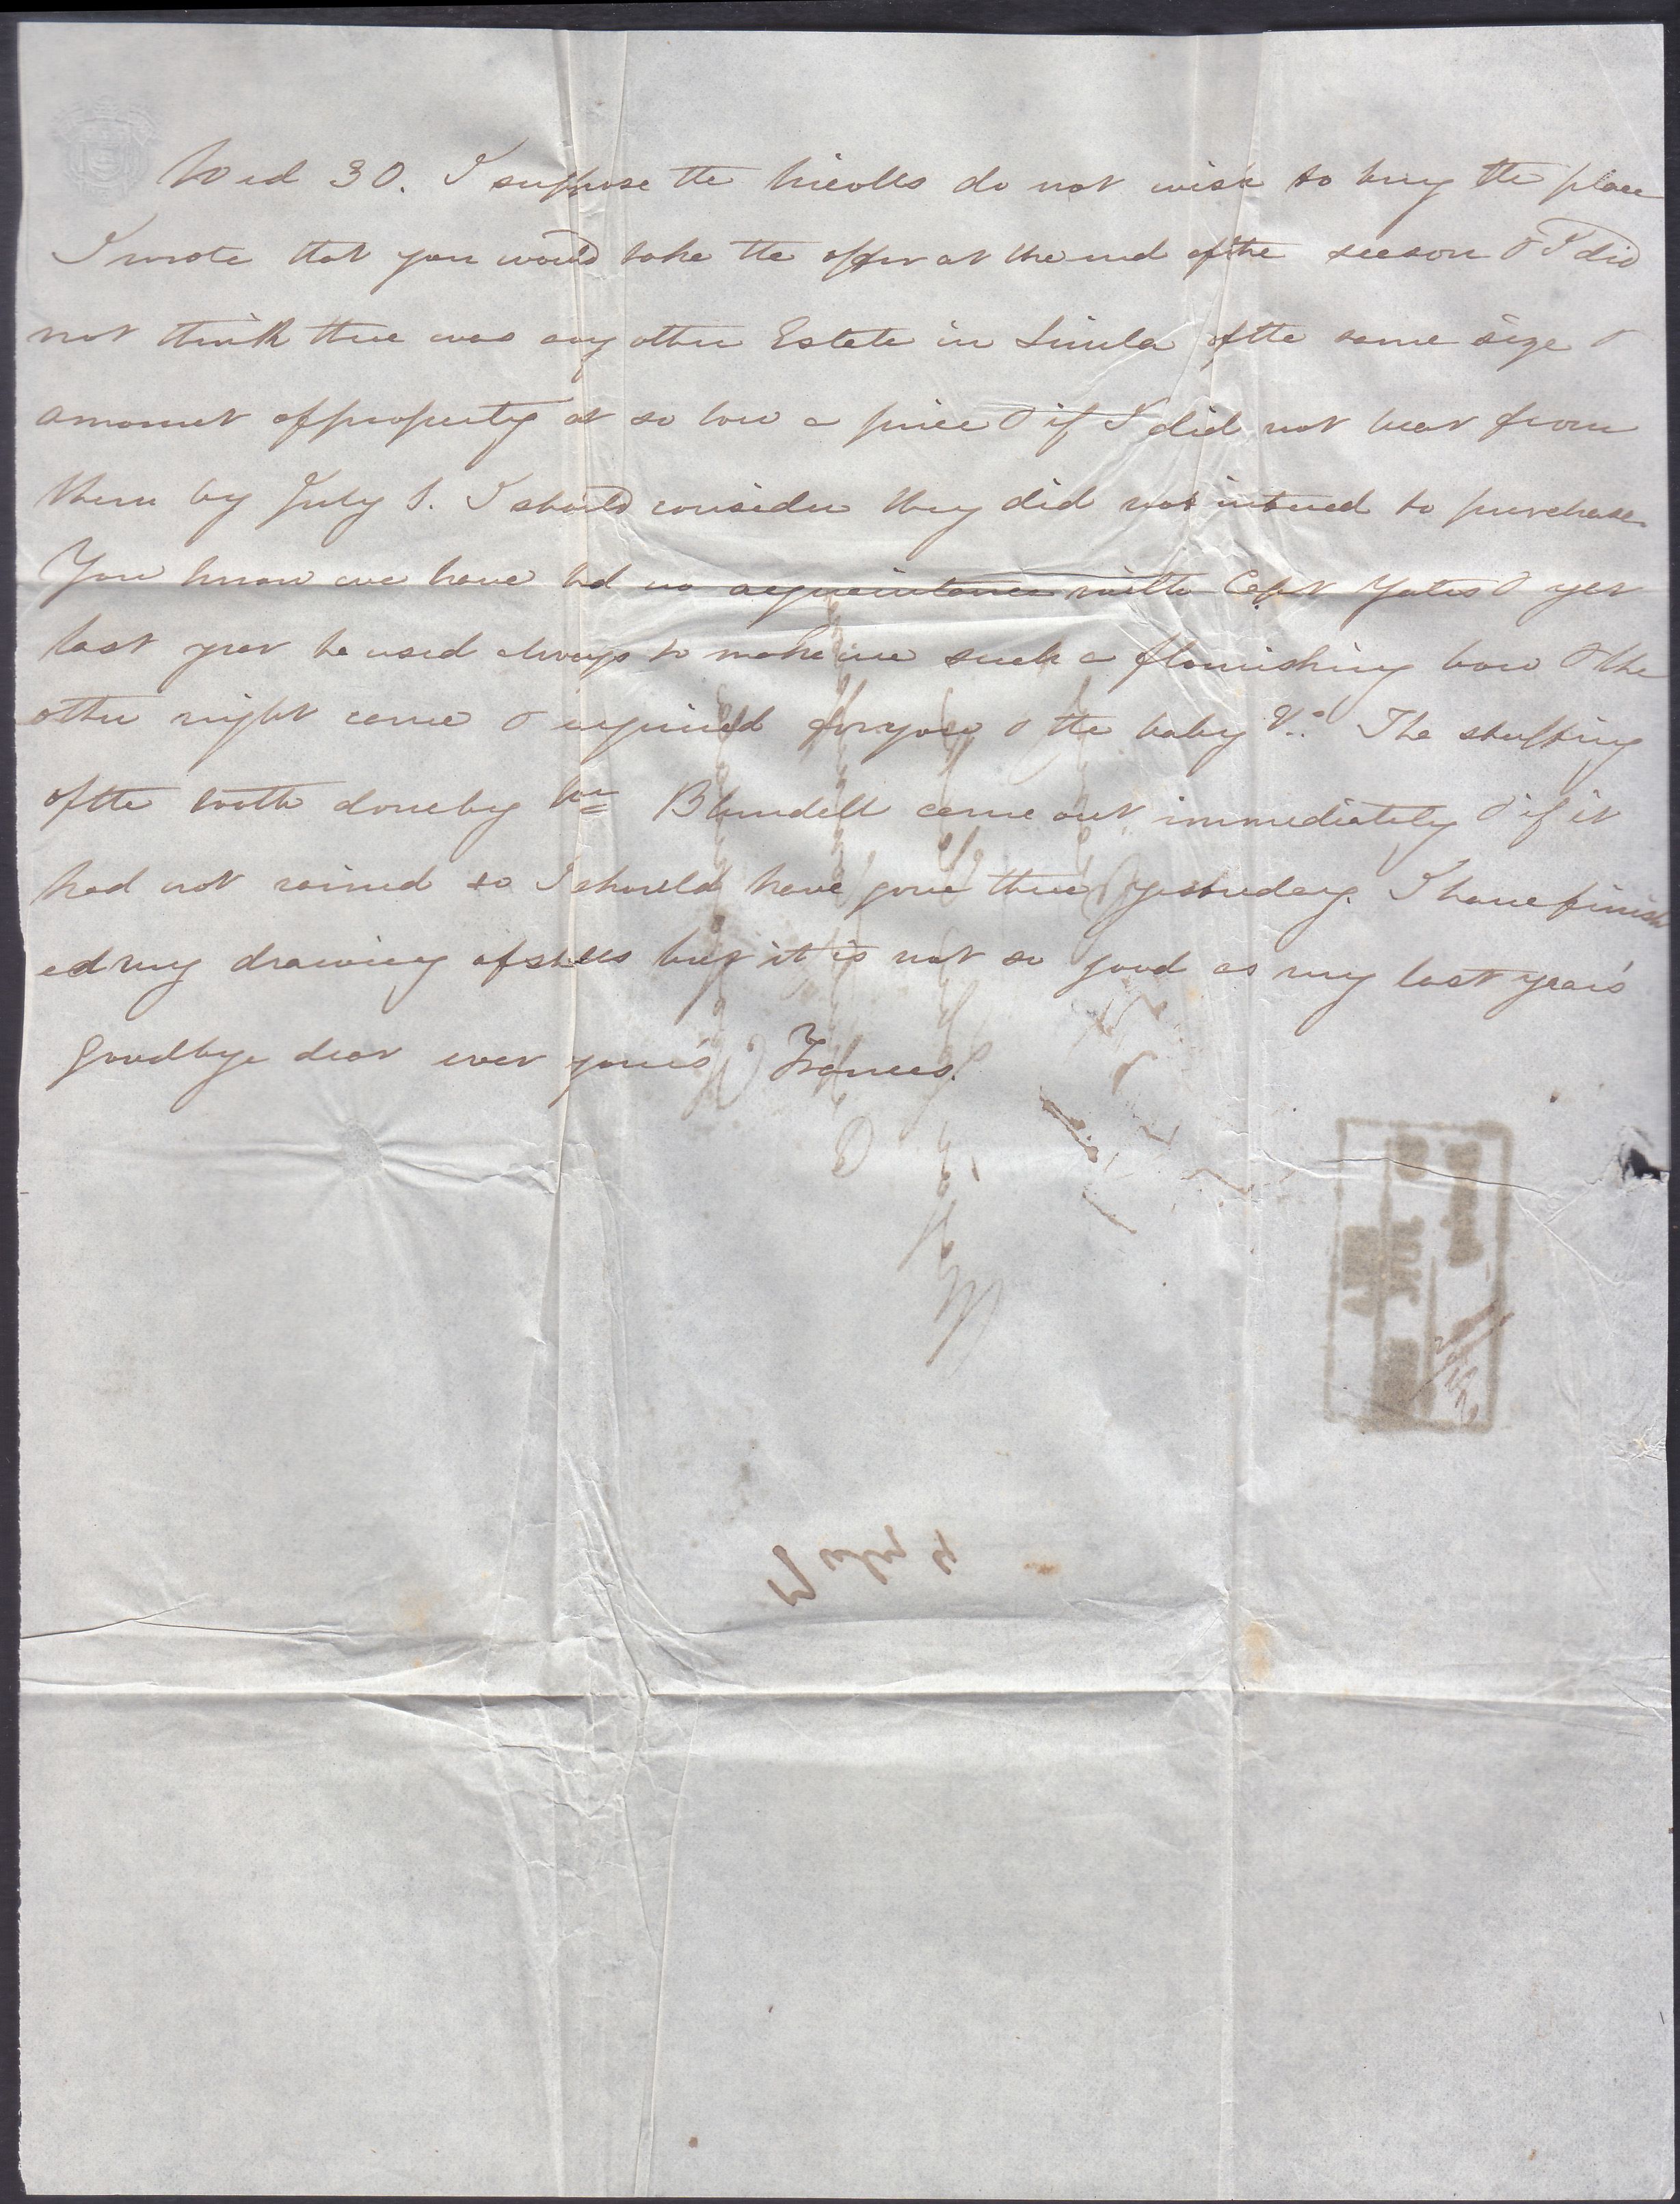 Wed 30. I suppose the Nicolls do not wish to buy the place
I wrote that you would take the offer at the end of the season & I did
not think there was any other Estate in Simla of the same size &
amount of property at so low a price & if I did not hear from
them by July 1. I should consider they did not intend to purchase.
You know we have had no acquaintance with Capt Yates & yet
last year he used always to make me such a flourishing bow & the
other night came & enquired for you & the baby &c. The stuffing
of the tooth done by Blundell came out immediately & if it
had not rained so I should have gone there yesterday. I have finish
ed my drawing of but it is not so good as my last year's
Goodbye dear ever yours Frances.